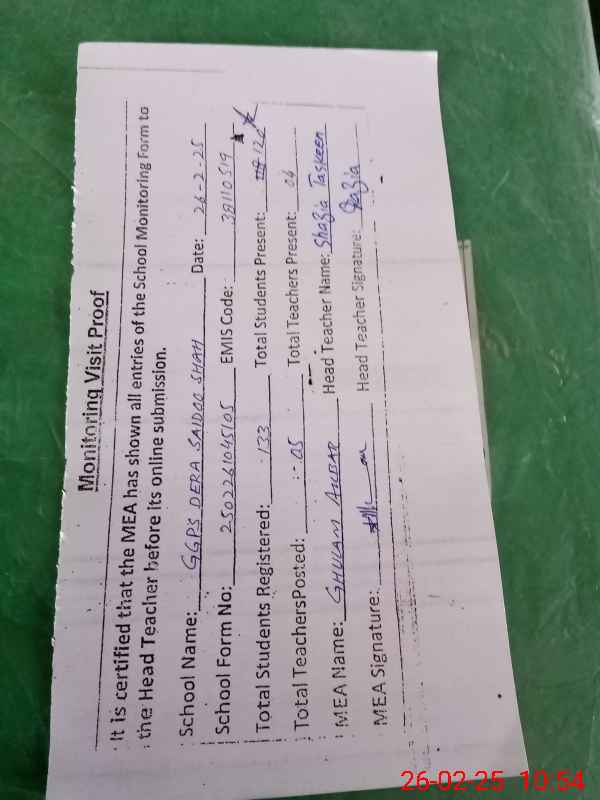 Monitoring Visit Proof
It is certified that the MEA has shown all entries of the School Monitoring Form to
the Head Teacher before its online submission.
School Name: GGPS DERA SAIDOO SHAH Date: 26-2-25
School Form No: 2502261045105 EMIS Code: 38110519
Total Students Registered: 133 Total Students Present: 120
Total TeachersPosted: 05 Total Teachers Present: 04
MEA Name: GHULAM Head Teacher Name: Shazia Taskeen
MEA Signature: Head Teacher Signature: Shazia
26-02-25 10:54